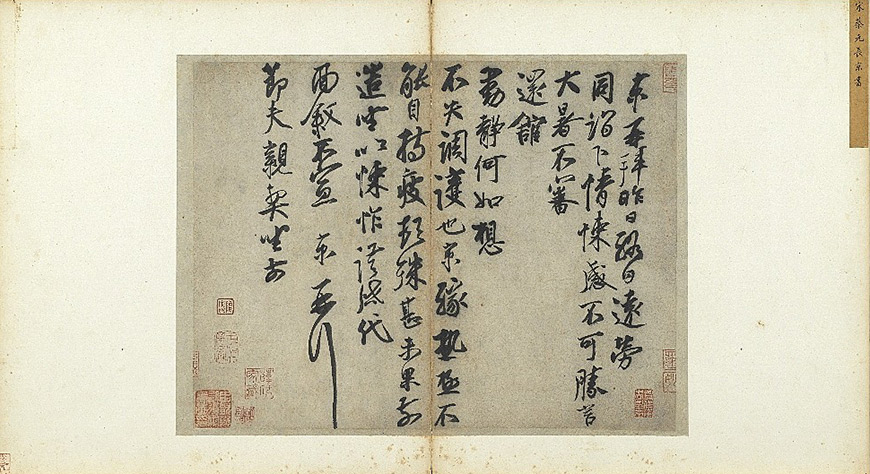 宋蔡元長京書
京再拜昨日終日遠勞
同詣下情悚感不可勝言
大暑不審
還館
動靜何如想
不失調護也京緣熱極不
能自持疲頓殊甚未果前
造坐次悚怍謹啟代
面敘不宣 京再拜
節夫親契坐前